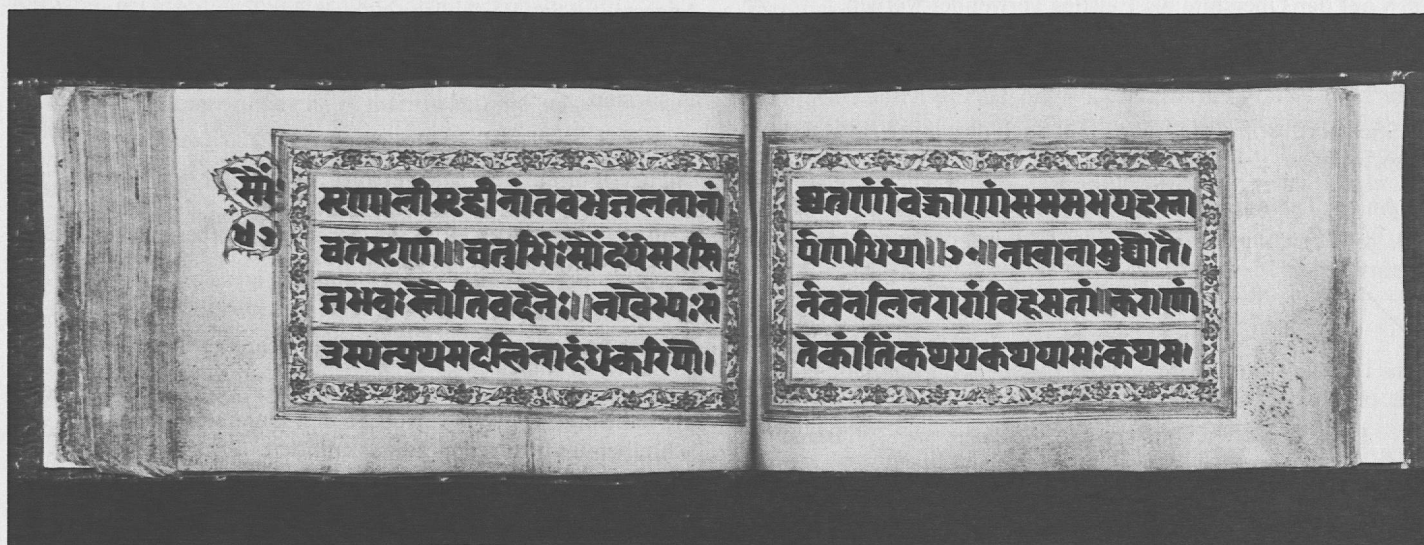 सौं
मृणालीमृद्वीनांतवभुजलतानां
चतसृणां॥चतुर्भिःसौंदर्यंसरसि
जभवःस्तौतिवदनैः॥नखेभ्यःसं
त्रस्यन्प्रथमदलिनादंधकरिपो।
श्चतुर्णांवक्त्राणांसममभयहस्ता
र्पणधिया॥७०॥नखानामुद्द्योतै।
र्नवनलिनरागंविहसतां॥कराणां
तेकांतिंकथयकथयामःकथमु।